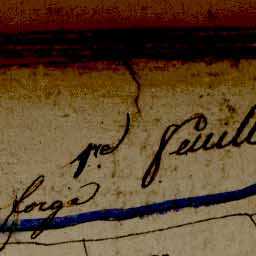 pre feuill
forge